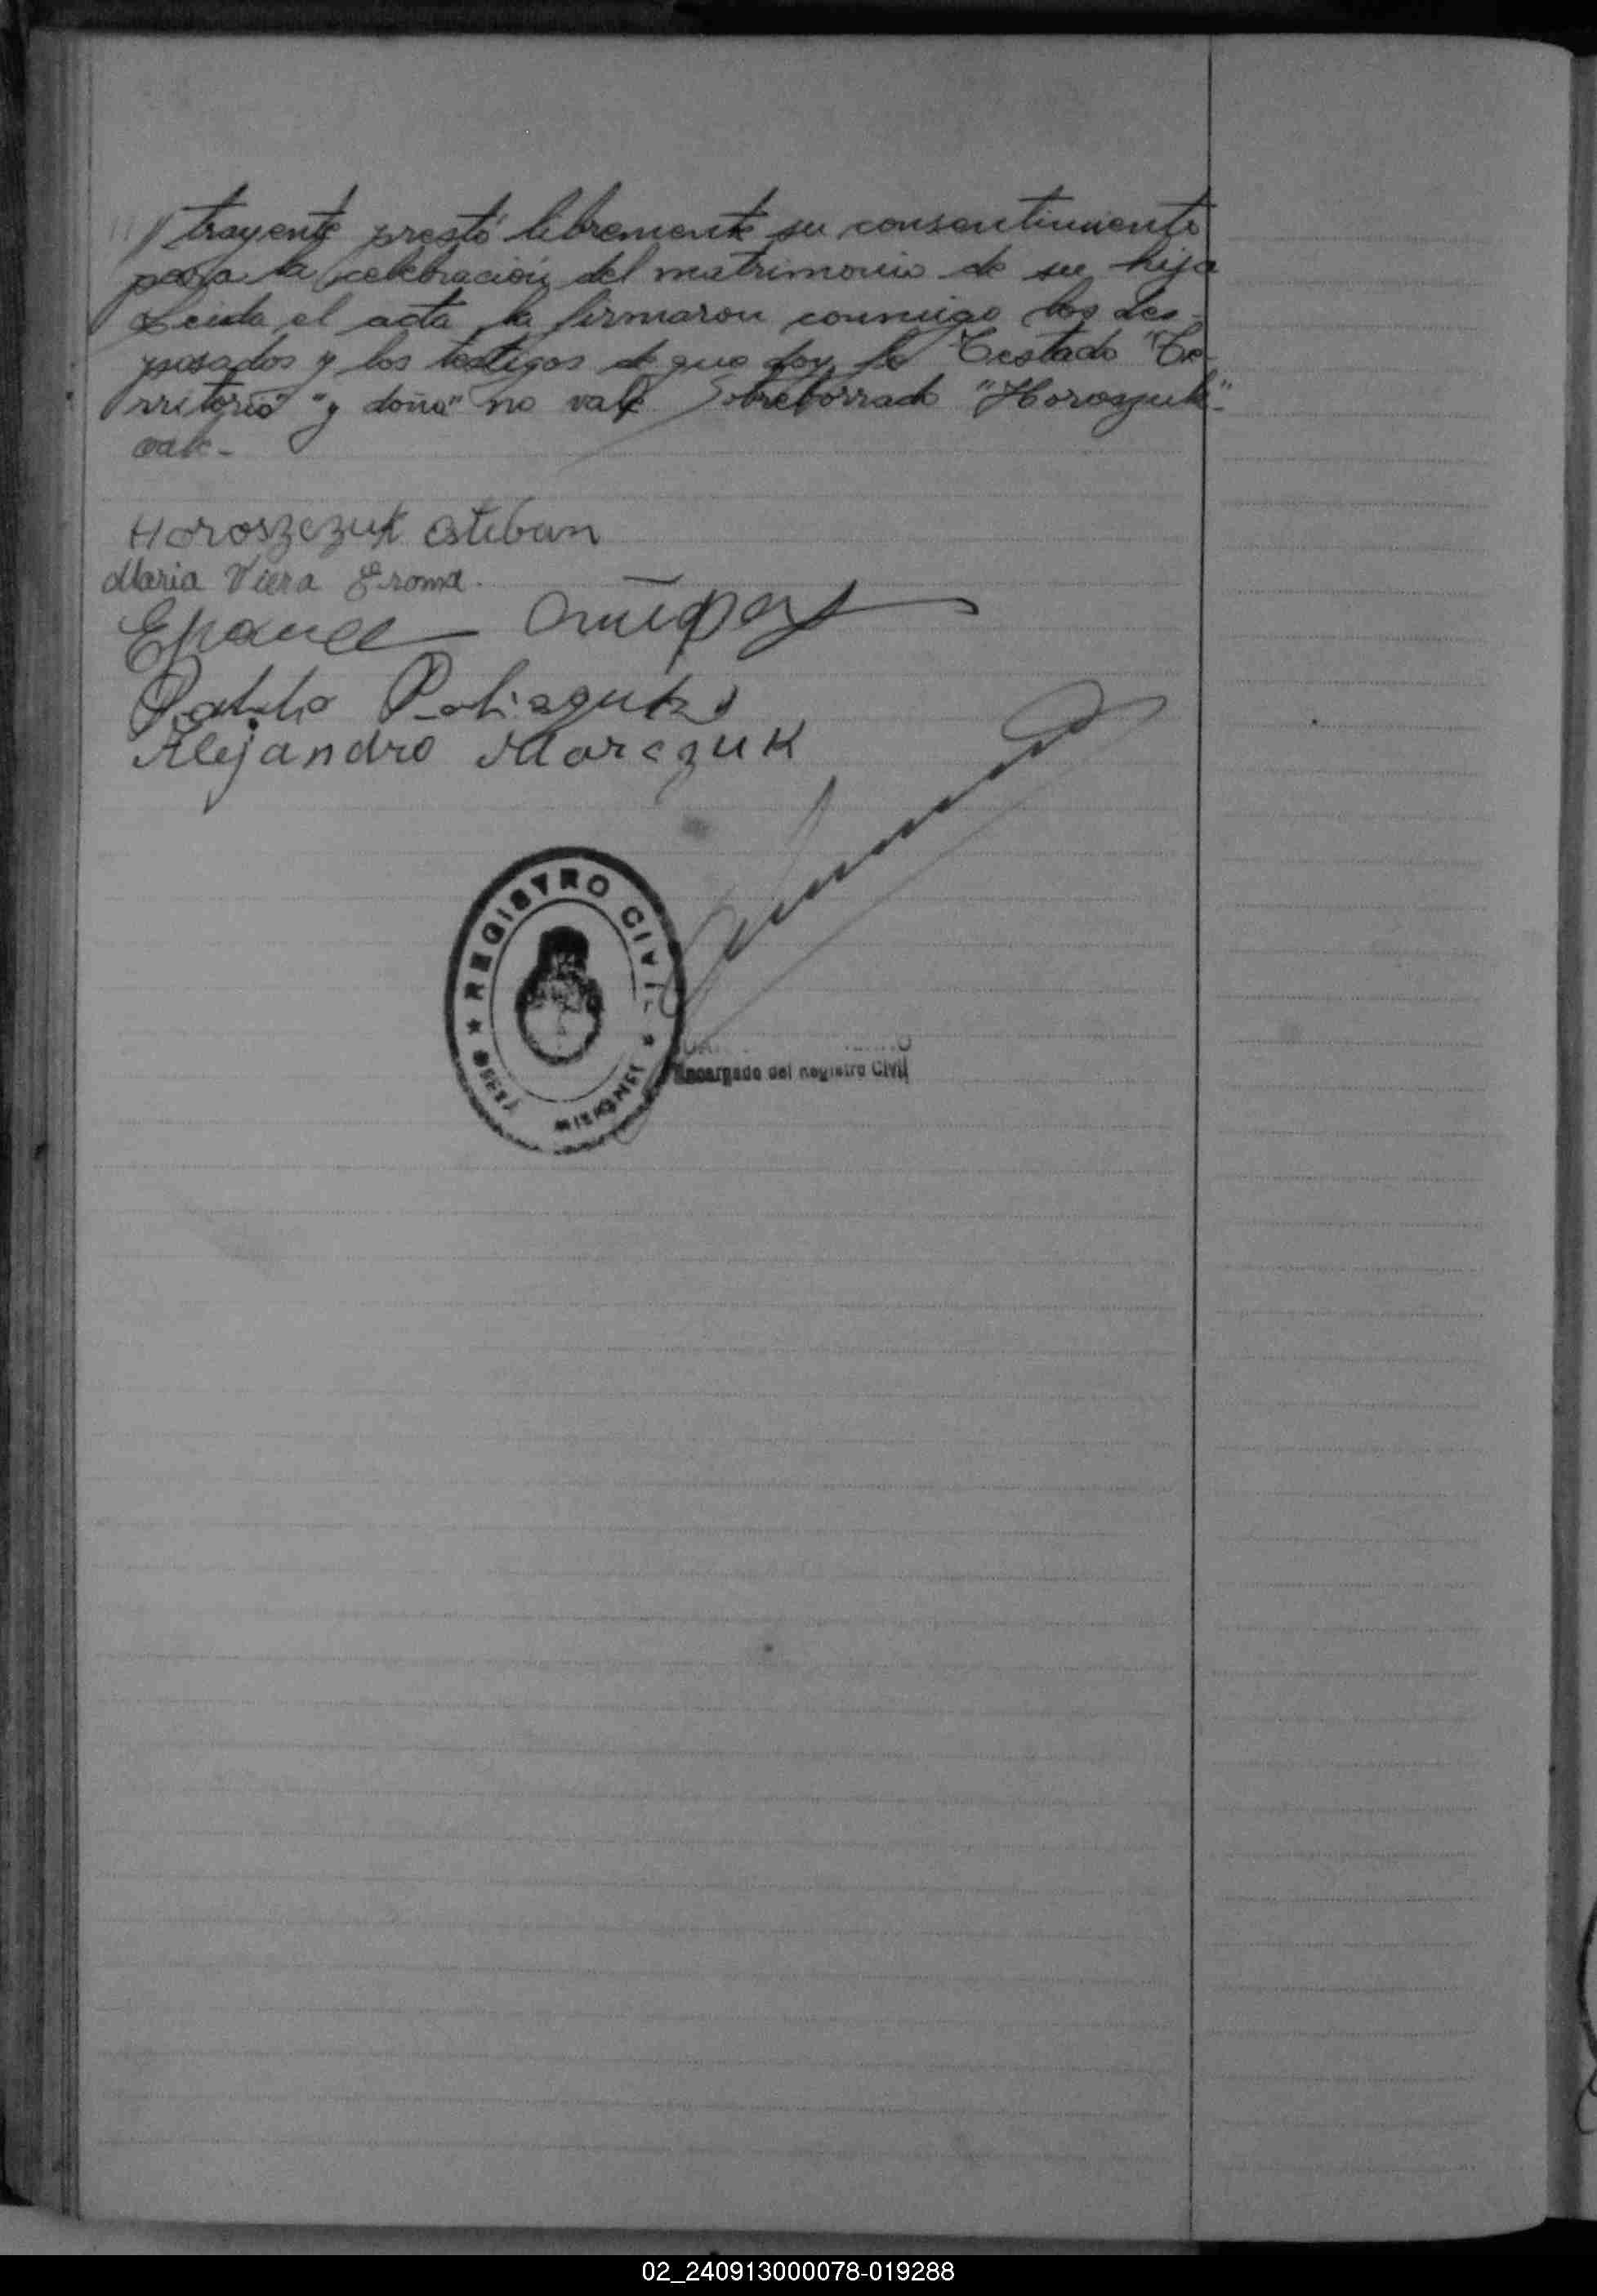 //trayente prestó libremente su consentimiento
para la celebración del matrimonio de su hija
Leida el acta la firmaron conmigo los des-
posados y los testigos de que doy fe Testado "Te-
rritorio" "y doña" no vale Sobreborrado "Horoszuk"-
vale-
Horoszczuk Esteban
Maria Viera
Pablo
Alejandro Marczuk
★ REGISTRO CIVIL ★
MISIONES
Encargado del Registro Civil
02_240913000078-019288